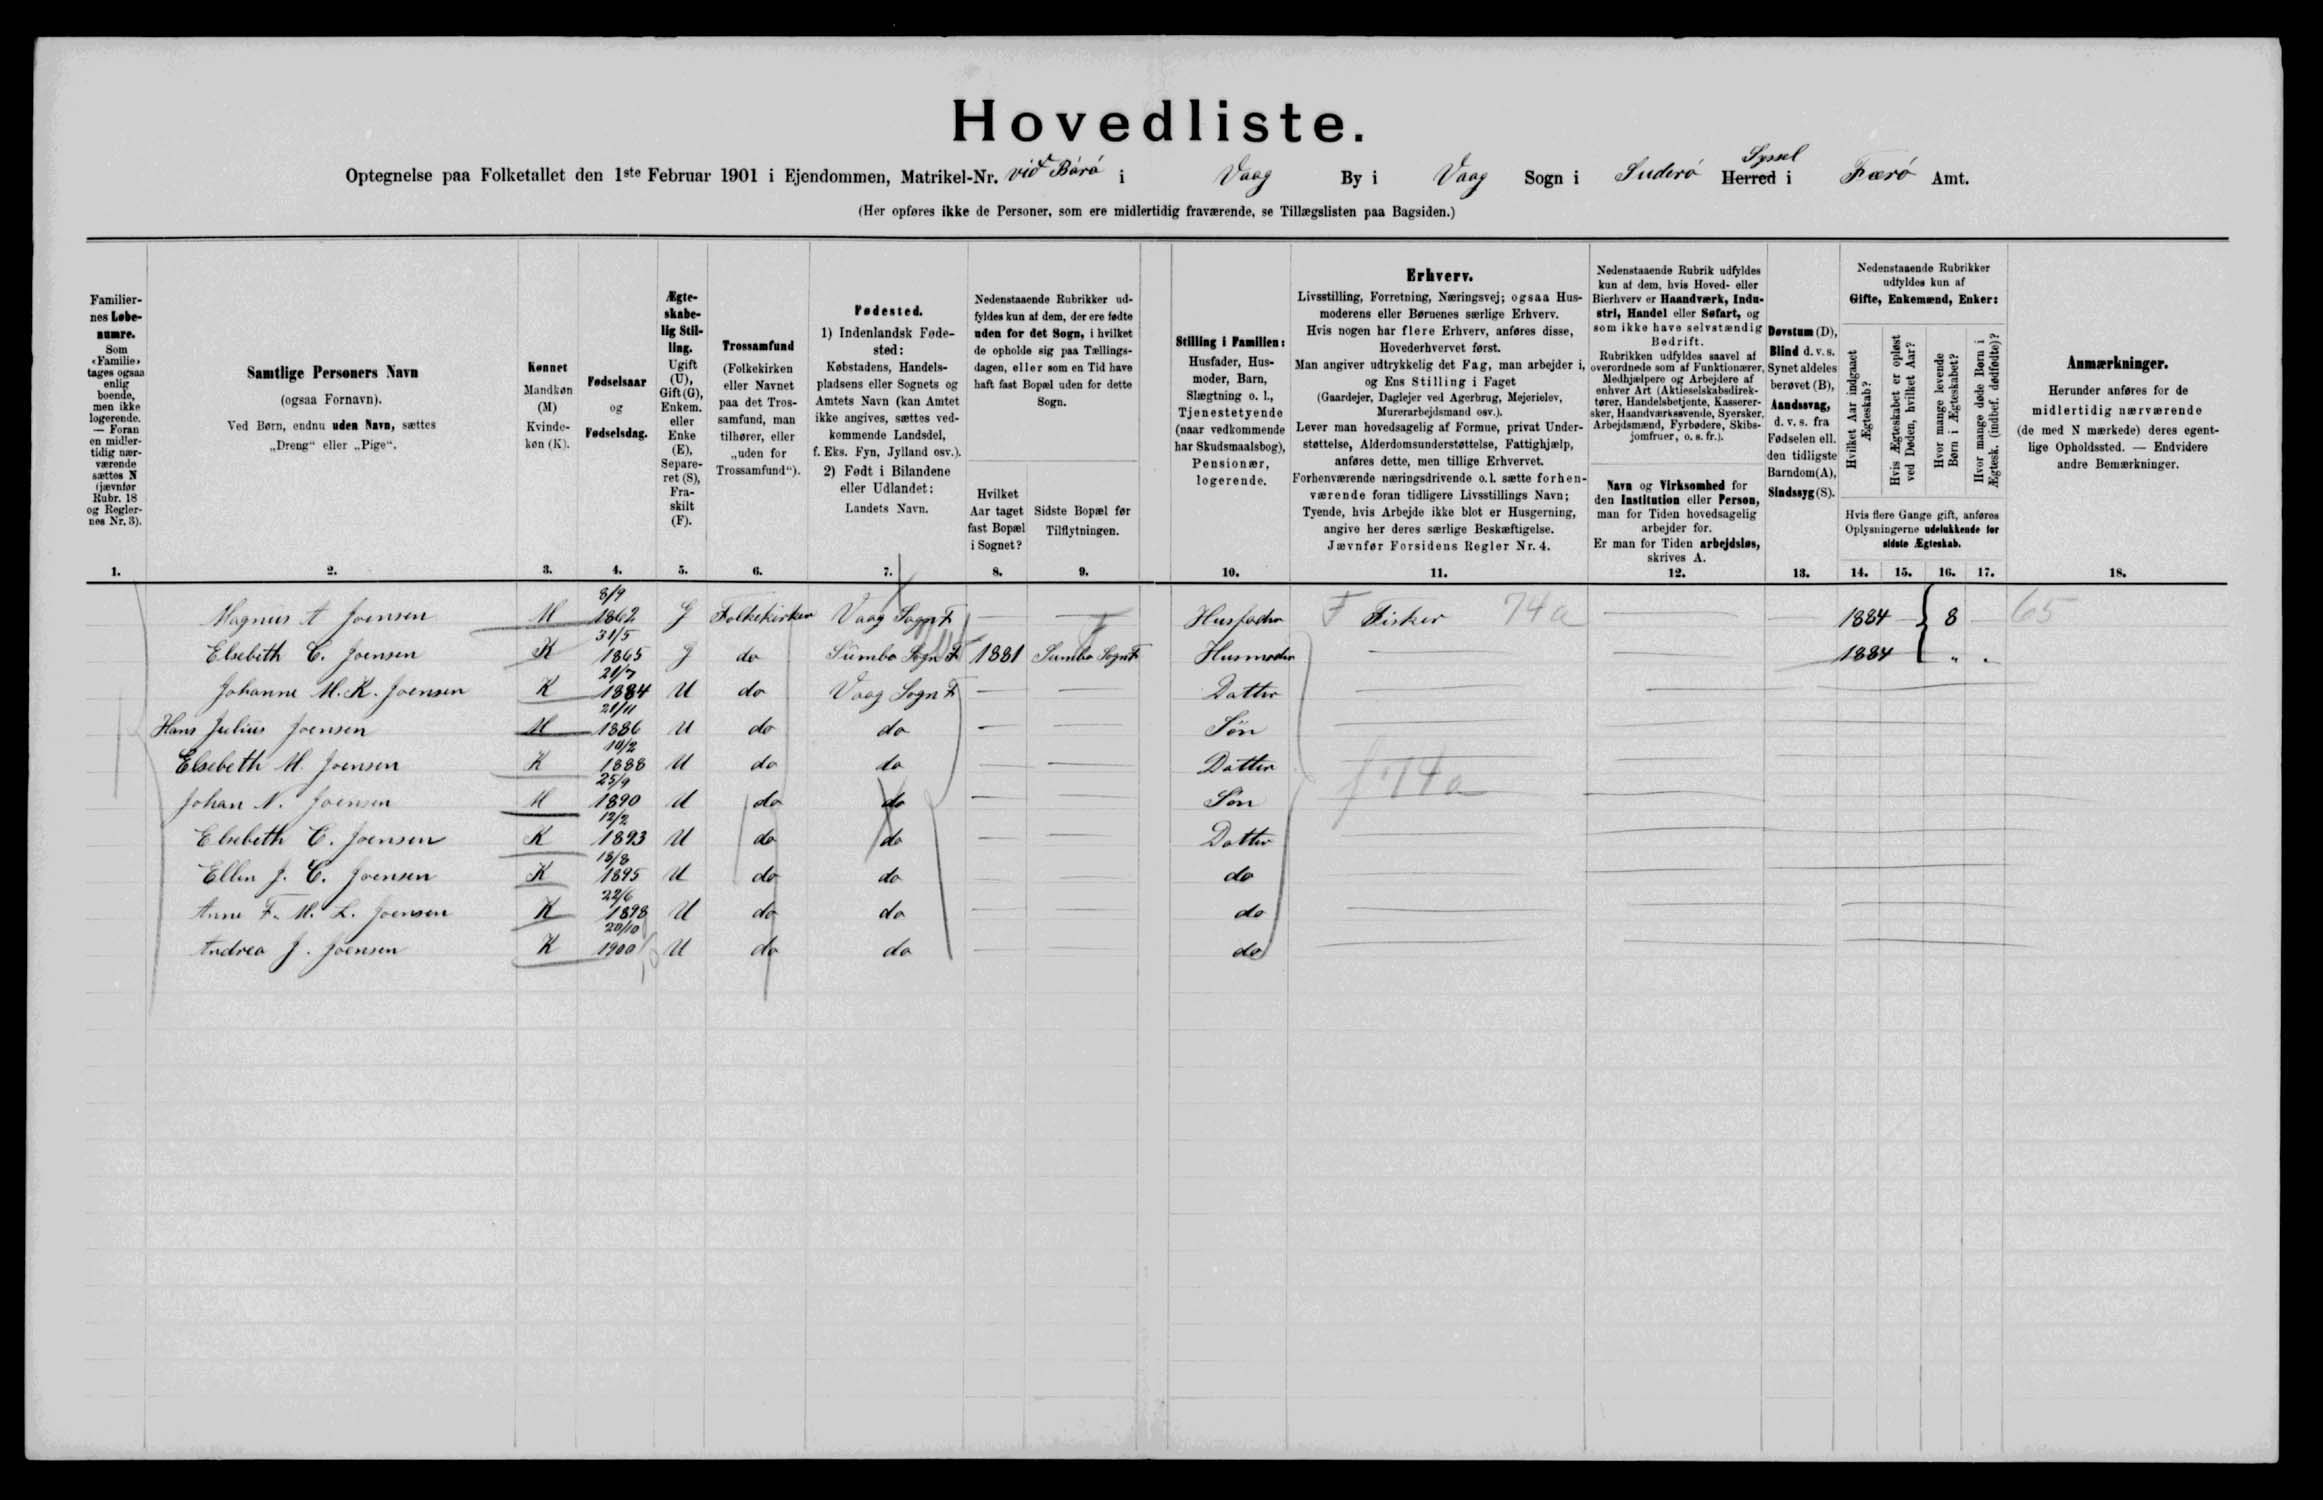 Hovedliste.
Optegnelse paa Folketallet den 1ste Februar 1901 i Ejendommen, Matrikel-Nr. við Bárá i Vaag By i Vaag Sogn i Suderö Herred Syssel i Færö Amt.
(Her opføres ikke de Personer, som ere midlertidig fraværende, se Tillægslisten paa Bagsiden.)
Familiernes Løbenumre. Som «Familie» tages ogsaa enlig boende, men ikke logerende. — Foran en midlertidig nærværende sættes N (jævnfør Rubr. 18 og Reglernes Nr. 3).
Samtlige Personers Navn
(ogsaa Fornavn).
Ved Børn, endnu uden Navn, sættes
„Dreng“ eller „Pige“.
Kønnet
Mandkøn (M) Kvindekøn (K).
Fødselsaar og Fødselsdag.
Ægteskabelig Stilling. Ugift (U), Gift (G), Enkem. eller Enke (E), Separeret (S), Fraskilt (F).
Trossamfund (Folkekirken eller Navnet paa det Trossamfund, man tilhører, eller „uden for Trossamfund“).
Fødested.
1) Indenlandsk Fødested: Købstadens, Handelspladsens eller Sognets og Amtets Navn (kan Amtet ikke angives, sættes vedkommende Landsdel, f. Eks. Fyn, Jylland osv.).
2) Født i Bilandene eller Udlandet: Landets Navn.
Nedenstaaende Rubrikker udfyldes kun af dem, der ere fødte uden for det Sogn, i hvilket de opholde sig paa Tællingsdagen, eller som en Tid have haft fast Bopæl uden for dette Sogn.
Hvilket Aar taget fast Bopæl i Sognet?
Sidste Bopæl før Tilflytningen.
Stilling i Familien: Husfader, Husmoder, Barn, Slægtning o. l., Tjenestetyende (naar vedkommende har Skudsmaalsbog), Pensionær, logerende.
Erhverv.
Livsstilling, Forretning, Næringsvej; ogsaa Husmoderens eller Børnenes særlige Erhverv.
Hvis nogen har flere Erhverv, anføres disse, Hovederhvervet først.
Man angiver udtrykkelig det Fag, man arbejder i, og Ens Stilling i Faget
(Gaardejer, Daglejer ved Agerbrug, Mejerielev, Murerarbejdsmand osv.).
Lever man hovedsagelig af Formue, privat Understøttelse, Alderdomsunderstøttelse, Fattighjælp, anføres dette, men tillige Erhvervet.
Forhenværende næringsdrivende o. l. sætte forhenværende foran tidligere Livsstillings Navn;
Tyende, hvis Arbejde ikke blot er Husgerning, angive her deres særlige Beskæftigelse.
Jævnfør Forsidens Regler Nr. 4.
Nedenstaaende Rubrik udfyldes kun af dem, hvis Hoved- eller Bierhverv er Haandværk, Industri, Handel eller Søfart, og som ikke have selvstændig Bedrift.
Rubrikken udfyldes saavel af overordnede som af Funktionærer, Medhjælpere og Arbejdere af enhver Art (Aktieselskabsdirektører, Handelsbetjente, Kasserersker, Haandværkssvende, Syersker, Arbejdsmænd, Fyrbødere, Skibsjomfruer, o. s. fr.).
Navn og Virksomhed for den Institution eller Person, man for Tiden hovedsagelig arbejder for.
Er man for Tiden arbejdsløs, skrives A.
Døvstum (D), Blind d. v. s. Synet aldeles berøvet (B), Aandssvag, d. v. s. fra Fødselen ell. den tidligste Barndom (A), Sindssyg (S).
Nedenstaaende Rubrikker udfyldes kun af
Gifte, Enkemænd, Enker:
Hvilket Aar indgaaet Ægteskab?
Hvis Ægteskabet er opløst ved Døden, hvilket Aar?
Hvor mange levende Børn i Ægteskabet?
Hvor mange døde Børn i Ægtesk. (indbef. dødfødte)?
Hvis flere Gange gift, anføres Oplysningerne udelukkende for sidste Ægteskab.
Anmærkninger.
Herunder anføres for de midlertidig nærværende (de med N mærkede) deres egentlige Opholdssted. — Endvidere andre Bemærkninger.
1. 2. 3. 4. 5. 6. 7. 8. 9. 10. 11. 12. 13. 14. 15. 16. 17. 18.
Magnus A Joensen M 8/9 1862 G Folkekirken Vaag Sogn F — — Husfader F Fisker 74a — — 1884 — 8 — 65
Elsebeth C. Joensen K 31/5 1865 G do Sumbo Sogn F 1881 Sumbo Sogn F Husmoder — — — 1884 " "
Johanne M. K. Joensen K 21/7 1884 U do Vaag Sogn F — — Datter
Hans Julius Joensen M 21/11 1886 U do do — — Sön
Elsebeth M. Joensen K 10/2 1888 U do do — — Datter
f 74a
Johan N. Joensen M 25/9 1890 U do do — — Sön
Elsebeth C. Joensen K 12/2 1893 U do do — — Datter
Ellen J. C. Joensen K 18/8 1895 U do do — — do
Anne F. M. L. Joensen K 22/6 1898 U do do — — do
Andrea J. Joensen K 20/10 1900 U do do — — do